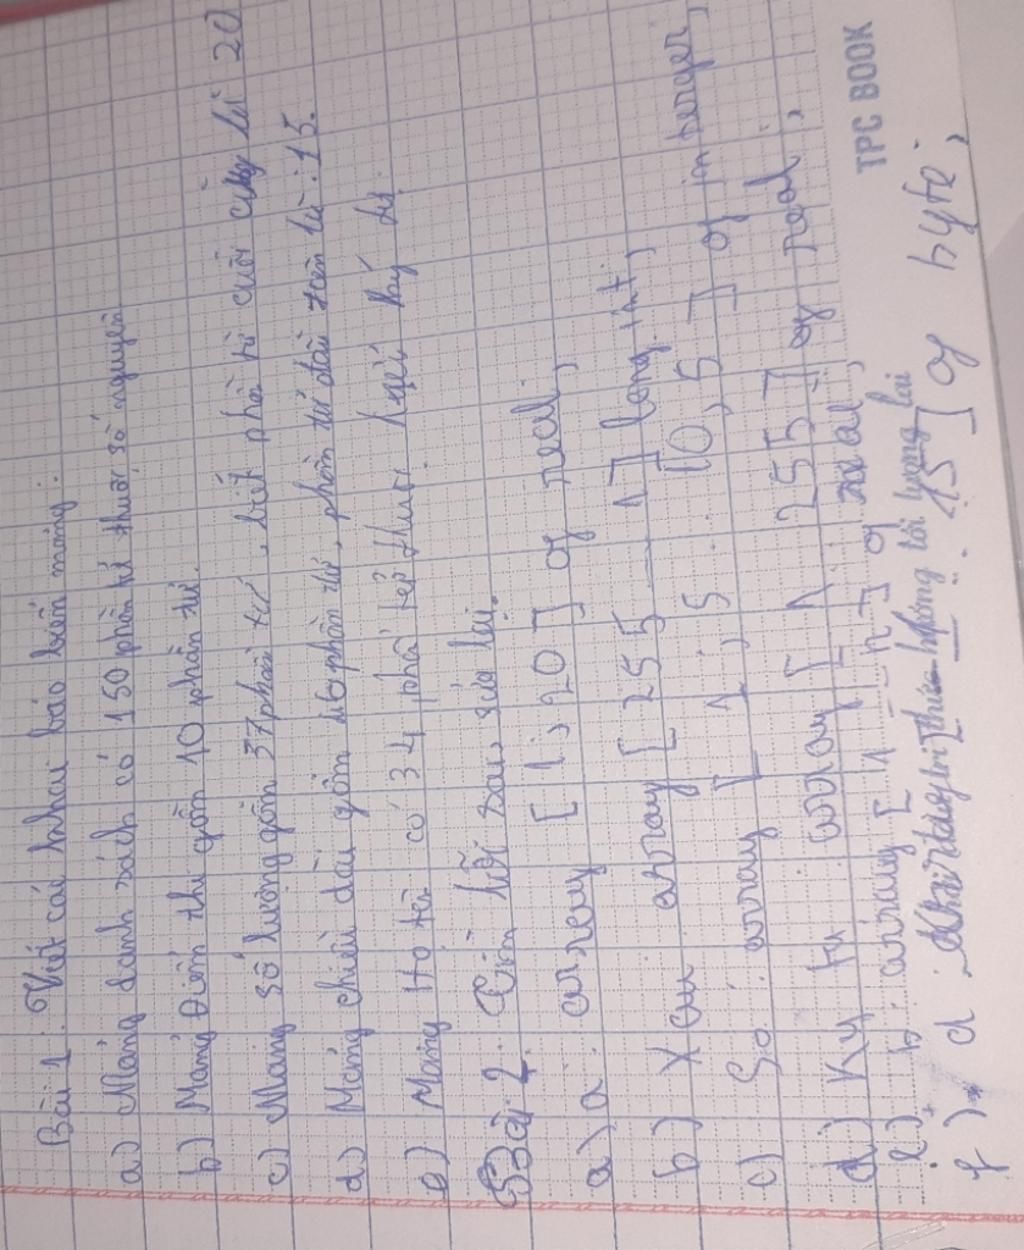 Bài 1. Viết các khai báo biến mảng:
a) Mảng danh sách có 150 phần tử thuộc số nguyên
b) Mảng Điểm thi gồm 10 phần tử.
c) Mảng số lượng gồm 37 phần tử, biết phần tử cuối cùng là 20
d) Mảng chiều dài gồm 16 phần tử, phần tử đầu tiên là: 15.
e) Mảng Họ tên có 34 phần tử thuộc kiểu ký tự.
Bài 2. Tìm lỗi sau sửa lại.
a) a: array [1, 20] of real;
b) X au array [255 — 1] long int;
c) So: array [1,5.. 10,5] of integer,
d) Ky tu array [1 255] of real;
e) b: array [1 -- n] of real;
f) d 15] of byte;
TPC BOOK